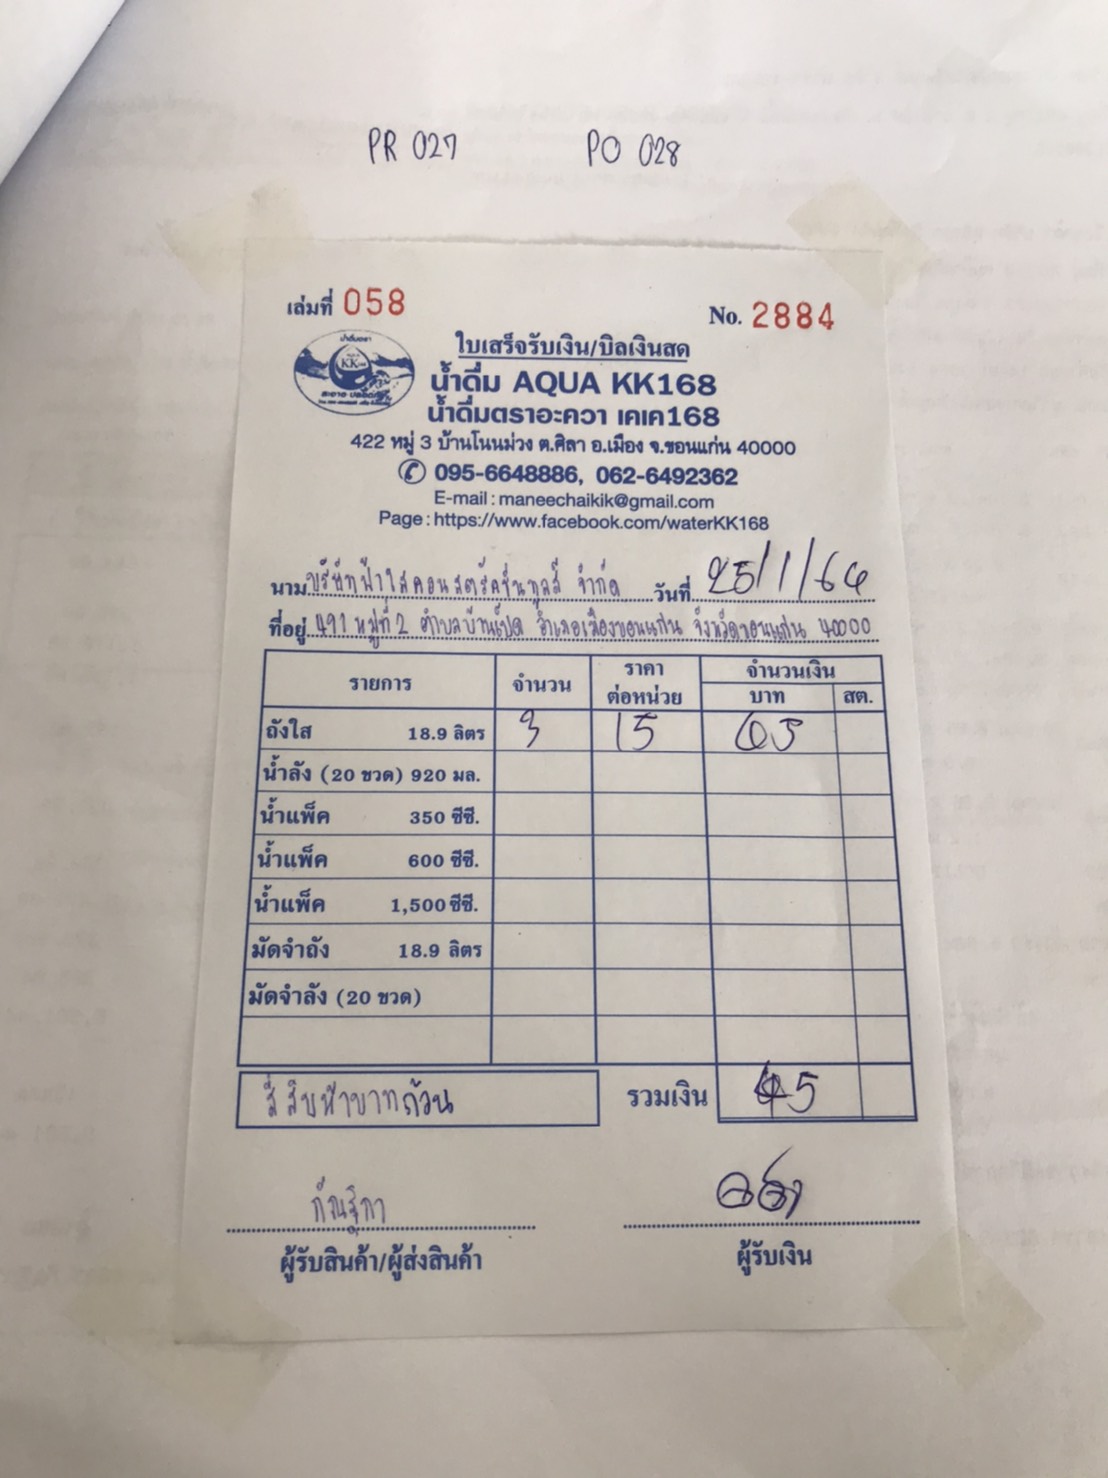 PR 027 PO 028
เล่มที่ 058 No. 2884
ใบเสร็จรับเงิน/บิลเงินสด
น้ำดื่ม AQUA KK168
น้ำดื่มตราอะควา เคเค168
422 หมู่ 3 บ้านโนนม่วง ต.ศิลา อ.เมือง จ.ขอนแก่น 40000
095-6648886, 062-6492362
E-mail : maneechaikik@gmail.com
Page : https://www.facebook.com/waterKK168
นาม บริษัทฟ้าใสคอนสตรัคชั่นทูลส์ จำกัด วันที่ 25/1/64
ที่อยู่ 491 หมู่ที่ 2 ตำบลบ้านเป็ด อำเภอเมืองขอนแก่น จังหวัดขอนแก่น 40000
รายการ จำนวน ราคาต่อหน่วย จำนวนเงิน
บาท สต.
ถังใส 18.9 ลิตร 3 15 45
น้ำลัง (20 ขวด) 920 มล.
น้ำแพ็ค 350 ซีซี.
น้ำแพ็ค 600 ซีซี.
น้ำแพ็ค 1,500 ซีซี.
มัดจำถัง 18.9 ลิตร
มัดจำลัง (20 ขวด)
สี่สิบห้าบาทถ้วน รวมเงิน 45
กัณฐิกา
ผู้รับสินค้า/ผู้ส่งสินค้า ผู้รับเงิน